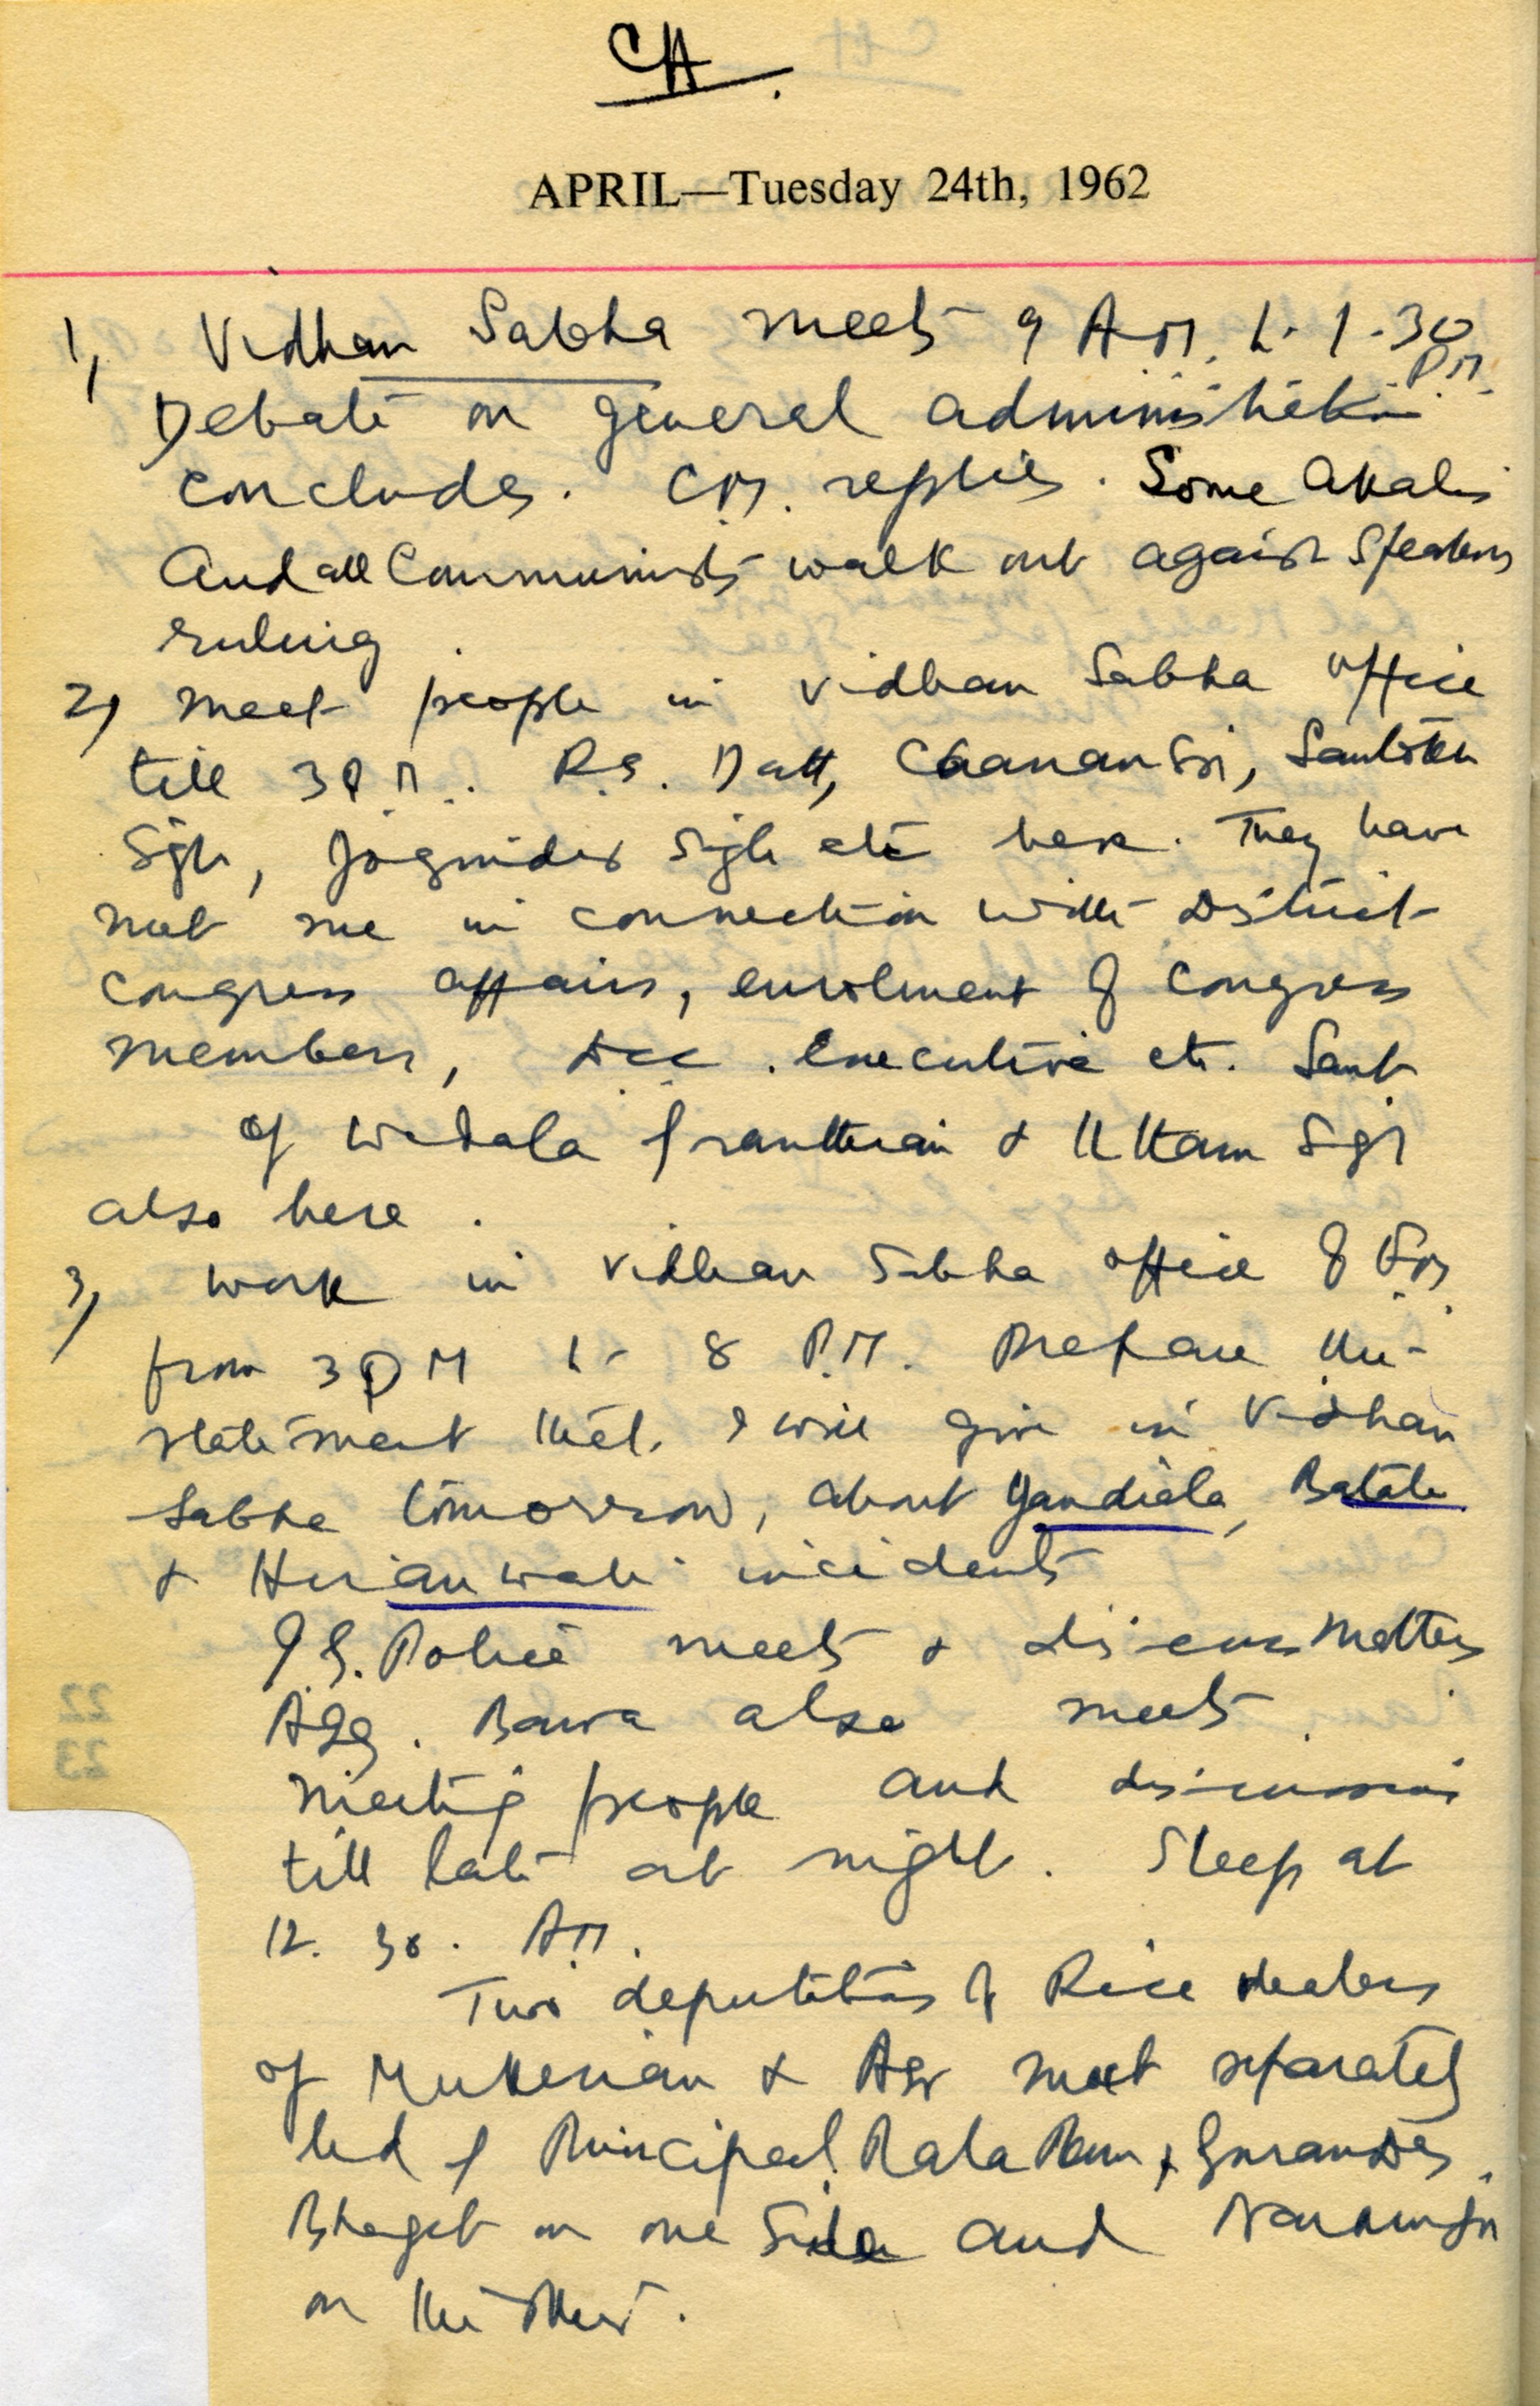 CH.
APRIL—Tuesday 24th, 1962
1, Vidhan Sabha meets 9 A.M. to 1.30 P.M.
Debate on general administration
concludes. C.M. replies. Some Akalis
and all Communists walk out against Speakers
ruling.
2, Meet people in Vidhan Sabha office
till 3 P.M. R.S. Datt, Chanan Sgh, Santokh
Sgh, Joginder Singh etc here. They have
met me in connection with District
Congress affairs, enrolment of Congress
members, DCC. Executive etc. Sant
of Wadala & Uttam Sgh
also here.
3, Work in Vidhan Sabha office of
from 3 PM to 8 P.M. Prepare the
statement that I will give in Vidhan
Sabha tomorrow, about Jandiala, Batala
& incidents
I.G. Police meets & discuss matters
Bawa also meets.
Meeting people and discussions
till late at night. Sleep at
12.30. A.M.
Two deputations of Rice dealers
of Mukerian & Asr meet separately
led by Principal Rala Ram & Gurandas
Bhagat on one side and
on the other.